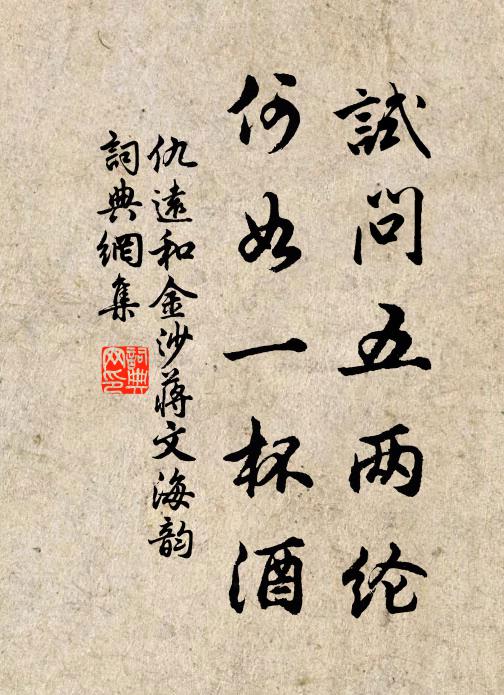 試問五两纶
何如一杯酒
仇遠和金沙蔣文海韵
詞典網集
詞典网印